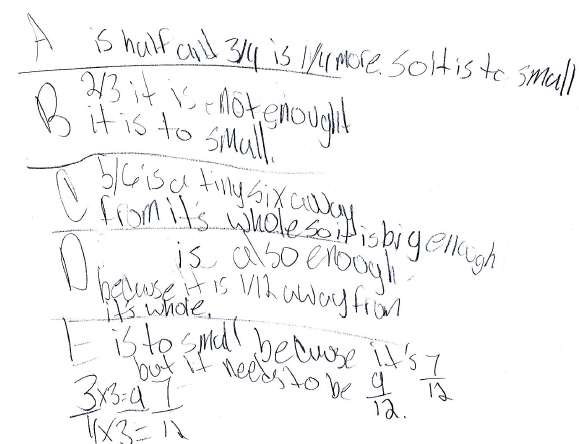 A is half and 3/4 is 1/4 more. So it is to small
B 2/3 it is not enought
it is to small.
C 5/6 is a tiny six away
from it's whole so it is big enough
D is also enough
because it is 1/12 away from
it's whole.
E is to small because it's 7/12
but it needs to be 9/12.
3x3=9
4x3=12